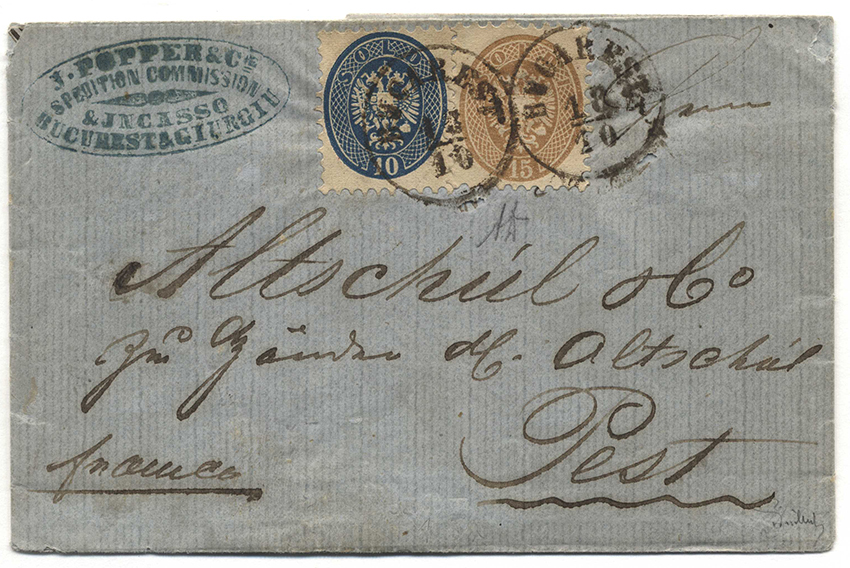 J. POPPER & Cº
SPEDITION COMMISSION
& INCASSO
BUCUREST & GIURGIU
SOLDI
10
SOLDI
15
BUKAREST
18
10
BUKAREST
18
10
Altschúl & Co
Händen H. Altschúl
Pest
franco